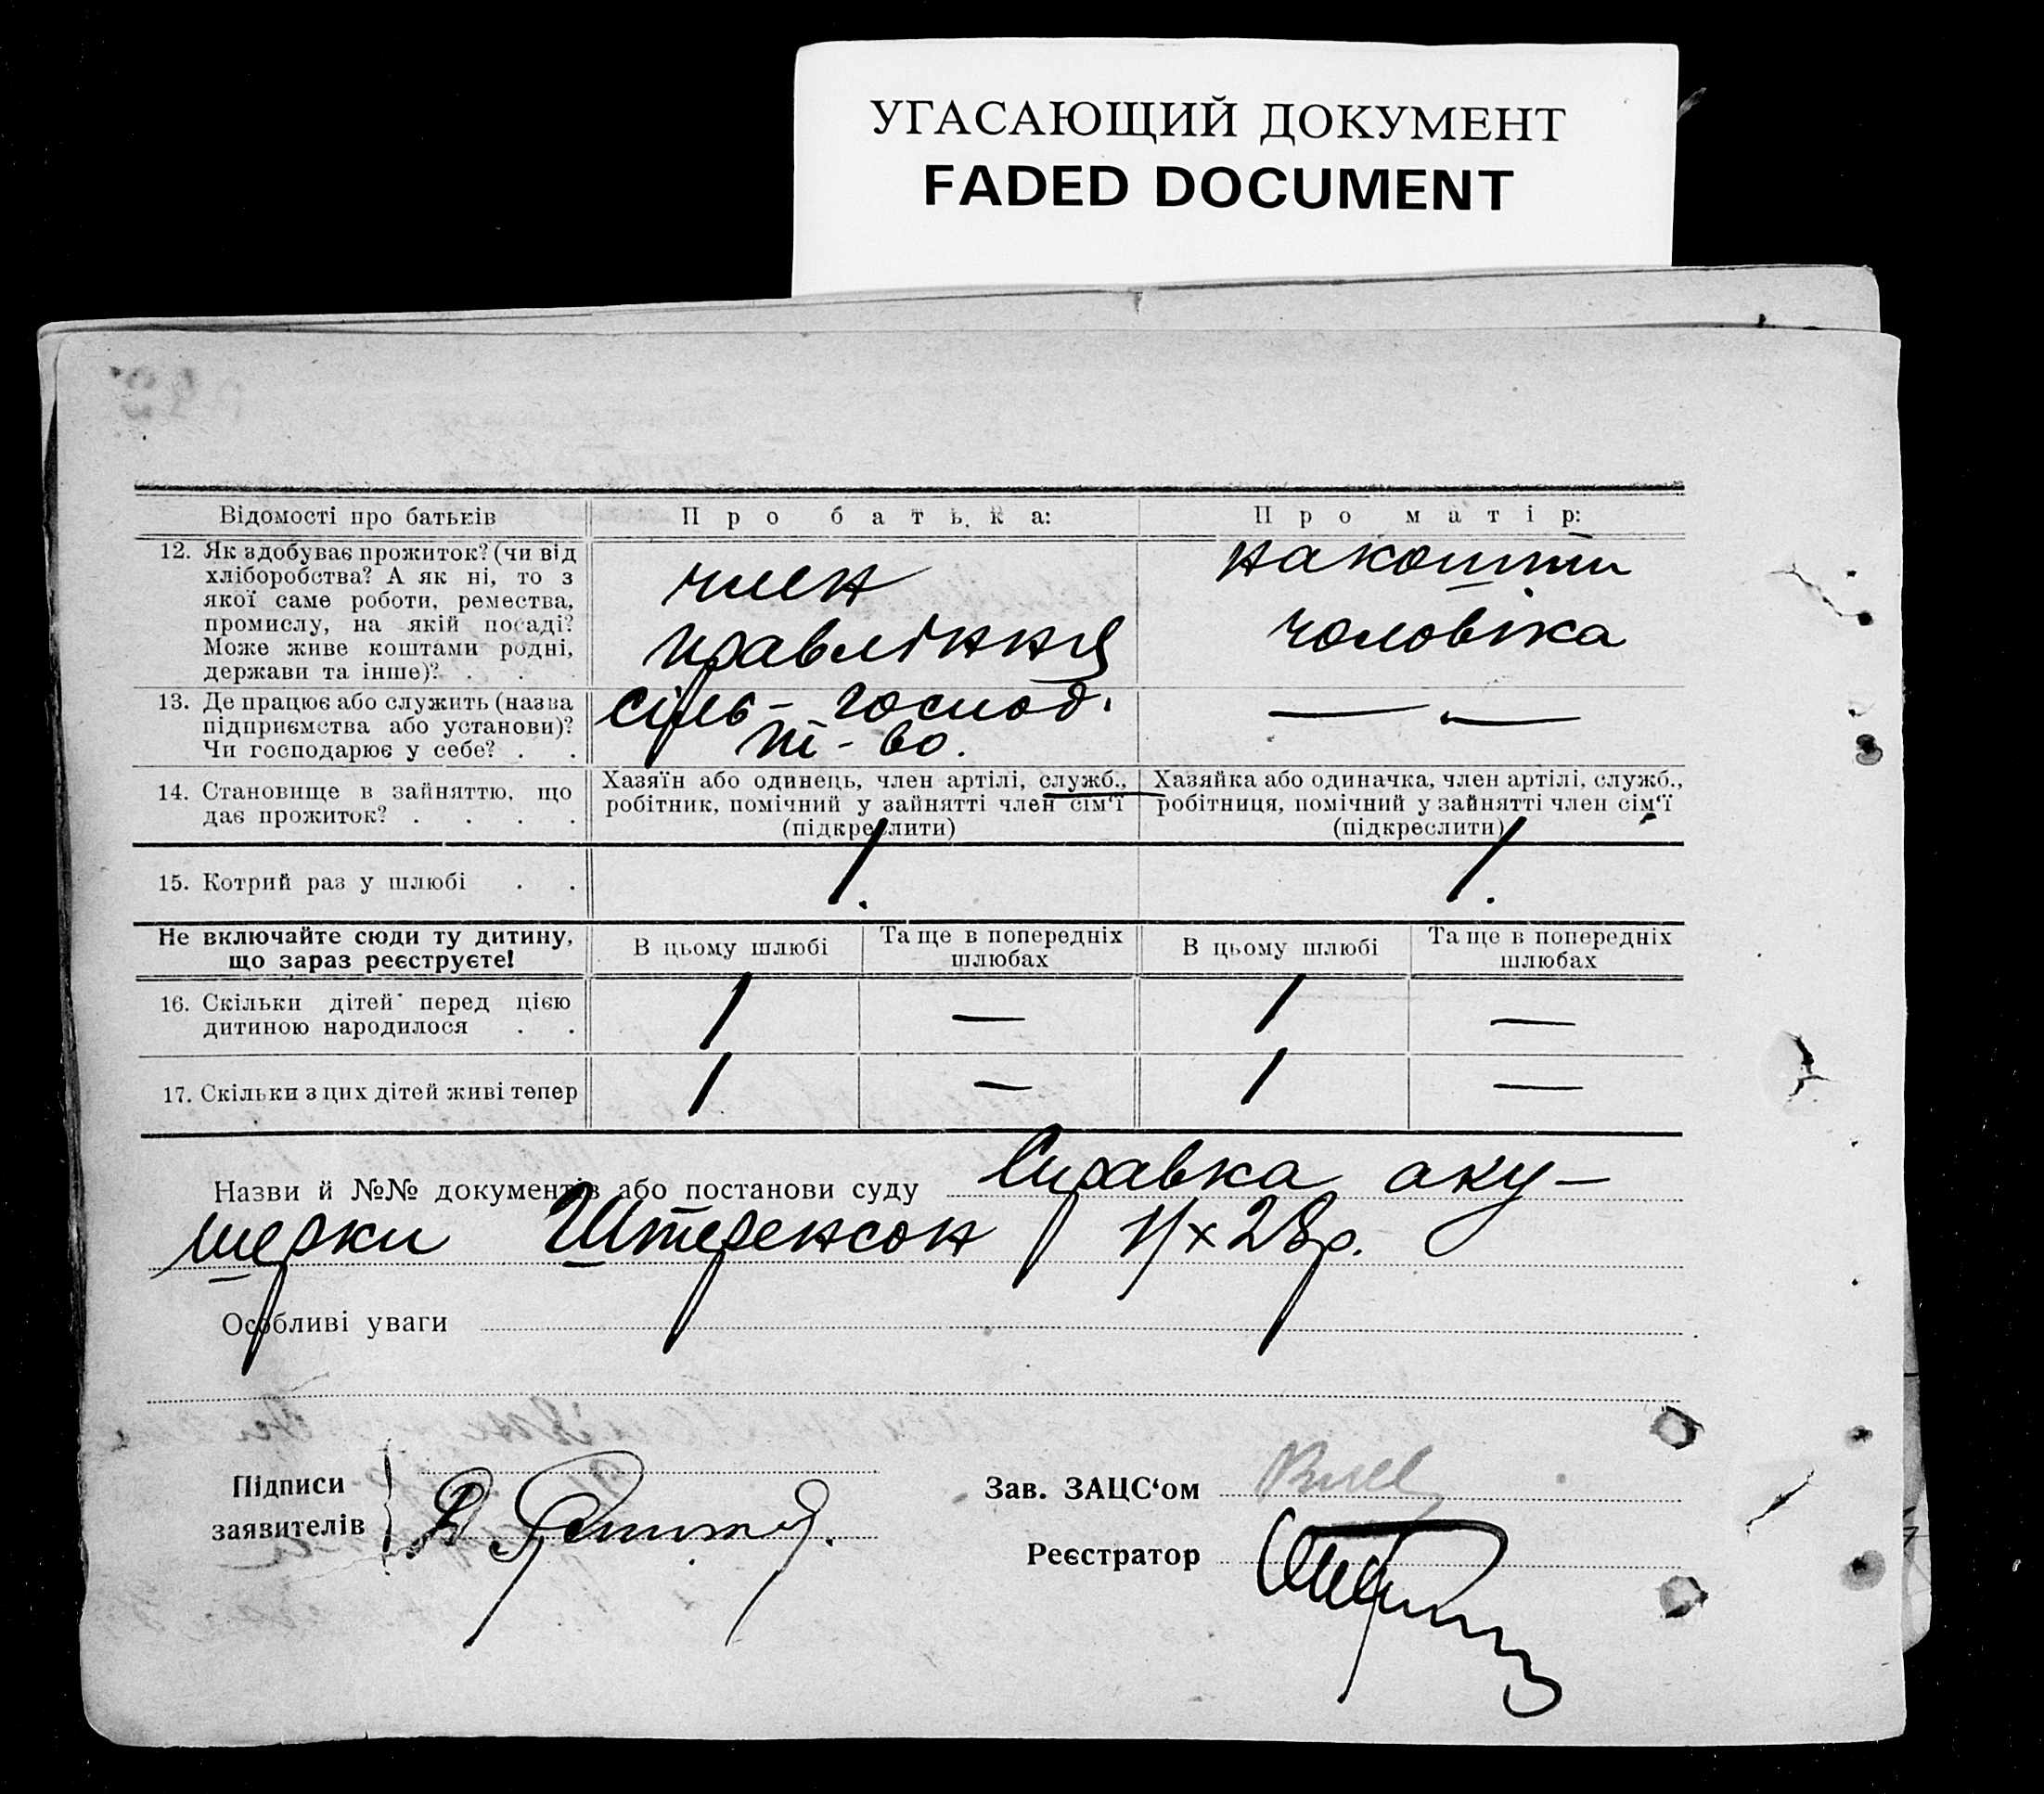 УГАСАЮЩИЙ ДОКУМЕНТ
FADED DOCUMENT
Відомості про батьків
Про батька:
Про матір:
12. Як здобуває прожиток? (чи від
хліборобства? А як ні, то з
якої саме роботи, ремества,
промислу, на якій посаді?
Може живе коштами родні,
держави та інше)? . .
член
правління
на кошти
чоловіка
13. Де працює або служить (назва
підприємства або установи)?
Чи господарює у себе? . .
сіль-господ.
т-во.
— —
14. Становище в зайняттю, що
дає прожиток? . . . .
Хазяїн або одинець, член артілі, служб.,
робітник, помічний у зайнятті член сім'ї
(підкреслити)
Хазяйка або одиначка, член артілі, служб.,
робітниця, помічний у зайнятті член сім'ї
(підкреслити)
15. Котрий раз у шлюбі . .
1.
1.
Не включайте сюди ту дитину,
що зараз реєструєте!
В цьому шлюбі
Та ще в попередніх
шлюбах
В цьому шлюбі
Та ще в попередніх
шлюбах
16. Скільки дітей перед цією
дитиною народилося . .
1
—
1
—
17. Скільки з цих дітей живі тепер
1
—
1
—
Назви й №№ документів або постанови суду Справка аку-
шерки Штеренсон 28р.
Особливі уваги
Підписи
заявителів
Зав. ЗАЦС'ом
Реєстратор